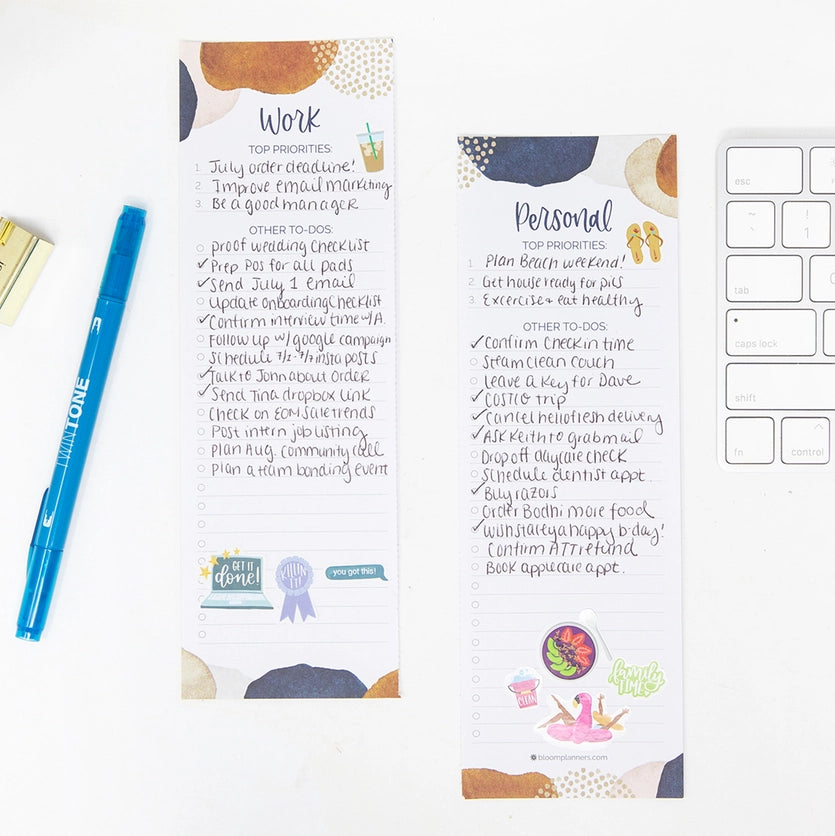 Work
TOP PRIORITIES:
1. July order deadline!
2. Improve email marketing
3. Be a good manager
OTHER TO-DOS:
proof wedding checklist
Prep POS for all pads
Send July 1 email
Update onboarding checklist
Confirm interview time w/A.
Follow up w/ google campaign
Schedule 7/1-7/7 insta posts
Talk to John about order
Send Tina dropbox link
Check on EOM sale trends
Post intern job listing
Plan Aug. community call
Plan a team bonding event
GET IT
done!
KILLIN'
IT!
you got this!
TWINTONE
Personal
TOP PRIORITIES:
1. Plan Beach weekend!
2. Get house ready for pics
3. Excercise & eat healthy
OTHER TO-DOS:
Confirm Check in time
Steam clean couch
leave a key for Dave
COSTCO trip
Cancel hellofresh delivery
ASK Keith to grab mail
Drop off daycare check
Schedule dentist appt.
Buy razors
Order Bodhi more food
Wish stacey a happy b-day!
Confirm ATT refund
Book applecare appt.
family
TIME
CLEAN
bloomplanners.com
esc
~
`
!
1
tab
caps lock
shift
fn
^
control